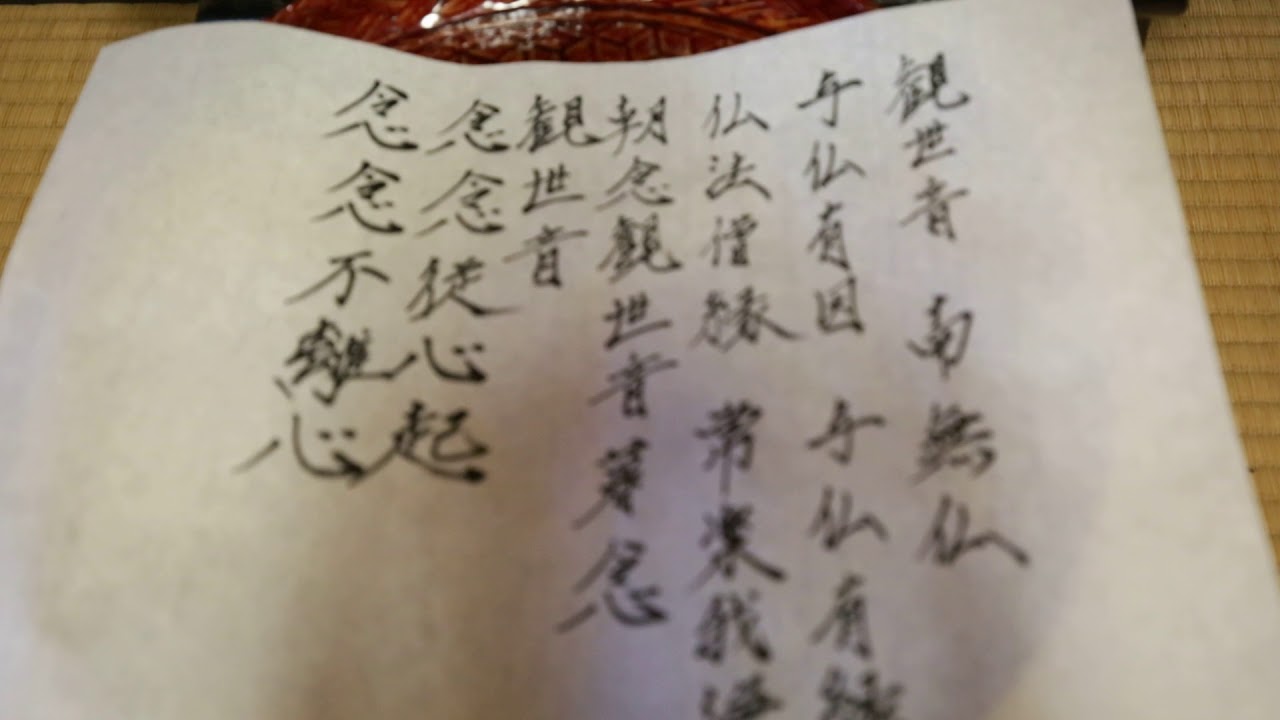 観世音 南無仏
与仏有因 与仏有縁
仏法僧縁 常楽我浄
朝念観世音 暮念
観世音
念念従心起
念念不離心